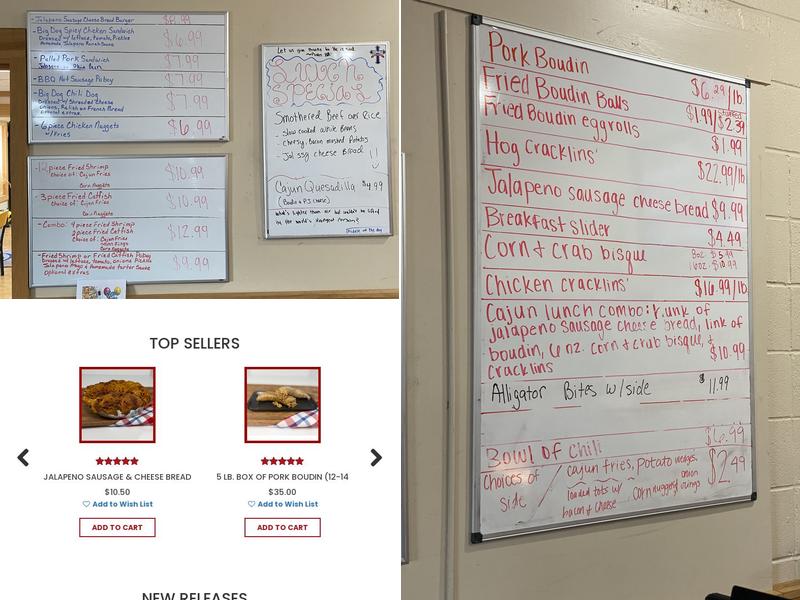 -Jalapeno Sausage Cheese Bread Burger
-Big Dog Spicy Chicken Sandwich $6.99
Dressed w/ lettuce, tomato, Pickle
Homemade Jalapeno Ranch Sauce
-Pulled Pork Sandwich $7.99
-BBQ Hot Sausage Poboy $7.99
-Big Dog Chili Dog $7.99
Dressed w/ Shredded Cheese
onions, Relish on French Bread
-6 piece Chicken Nuggets $6.99
w/Fries
-12 piece Fried Shrimp $10.99
Choice of: Cajun Fries
Corn Nuggets
-3 piece Fried Catfish $10.99
Choice of: Cajun Fries
Corn Nuggets
-Combo: 4 piece Fried Shrimp $12.99
2 piece Fried Catfish
Choice of: Cajun Fries
onion Rings
Corn Nuggets
-Fried Shrimp or Fried Catfish Poboy $9.99
Dressed w/ lettuce, tomato, onions Pickle
Jalapeno Mayo & Homemade tarter Sauce
Optional extras
LUNCH
SPECIAL
Smothered Beef over Rice
- Slow cooked white Beans
- Cheesy, Bacon mashed Potatoes
- Jal ssg cheese Bread
Cajun Quesadilla $4.99
(Boudin & PJ Cheese)
What's lighter than air but
by the world's strongest person?
Riddle of the day
TOP SELLERS
JALAPENO SAUSAGE & CHEESE BREAD
$10.50
Add to Wish List
ADD TO CART
5 LB. BOX OF PORK BOUDIN (12-14
$35.00
Add to Wish List
ADD TO CART
NEW RELEASES
Pork Boudin $6.29/lb
Fried Boudin Balls $1.99/$2.39
Fried Boudin eggrolls $1.99
Hog Cracklins' $22.99/lb
Jalapeno sausage cheese bread $9.99
Breakfast slider $4.49
Corn & crab bisque 8oz. $5.99
16oz. $10.99
Chicken cracklins' $16.99/lb
Cajun lunch combo: hunk of
jalapeno sausage cheese bread, link of
boudin, 6 oz. corn & crab bisque, &
cracklins $10.99
Alligator Bites w/side $11.99
Bowl of Chili $6.99
choices of side / cajun fries, potato wedges, $2.49
loaded tots w/ bacon & cheese
corn nuggets, onion rings